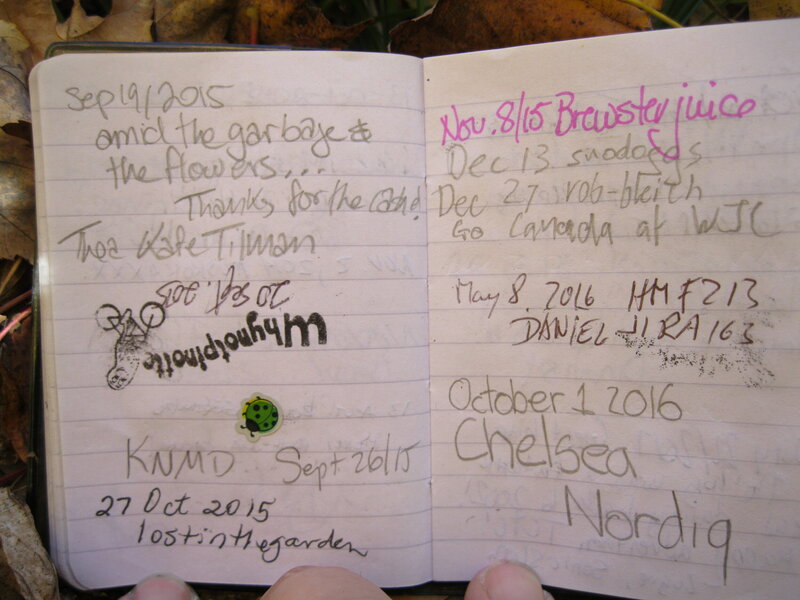 Sep 19/2015
amid the garbage &
the flowers...
Thanks for the cache!
Kate Tilman
20 sept. 2015
Whynotpinotte
KNMD Sept 26/15
27 Oct 2015
lostinthegarden
Nov. 8/15 Brewsterjuice
Dec 13 snodoggs
Dec 27 rob-bleith
Go Canada at WJC
May 8, 2016 HMF213
DANIEL JIRA 163
October 1 2016
Chelsea
Nordiq